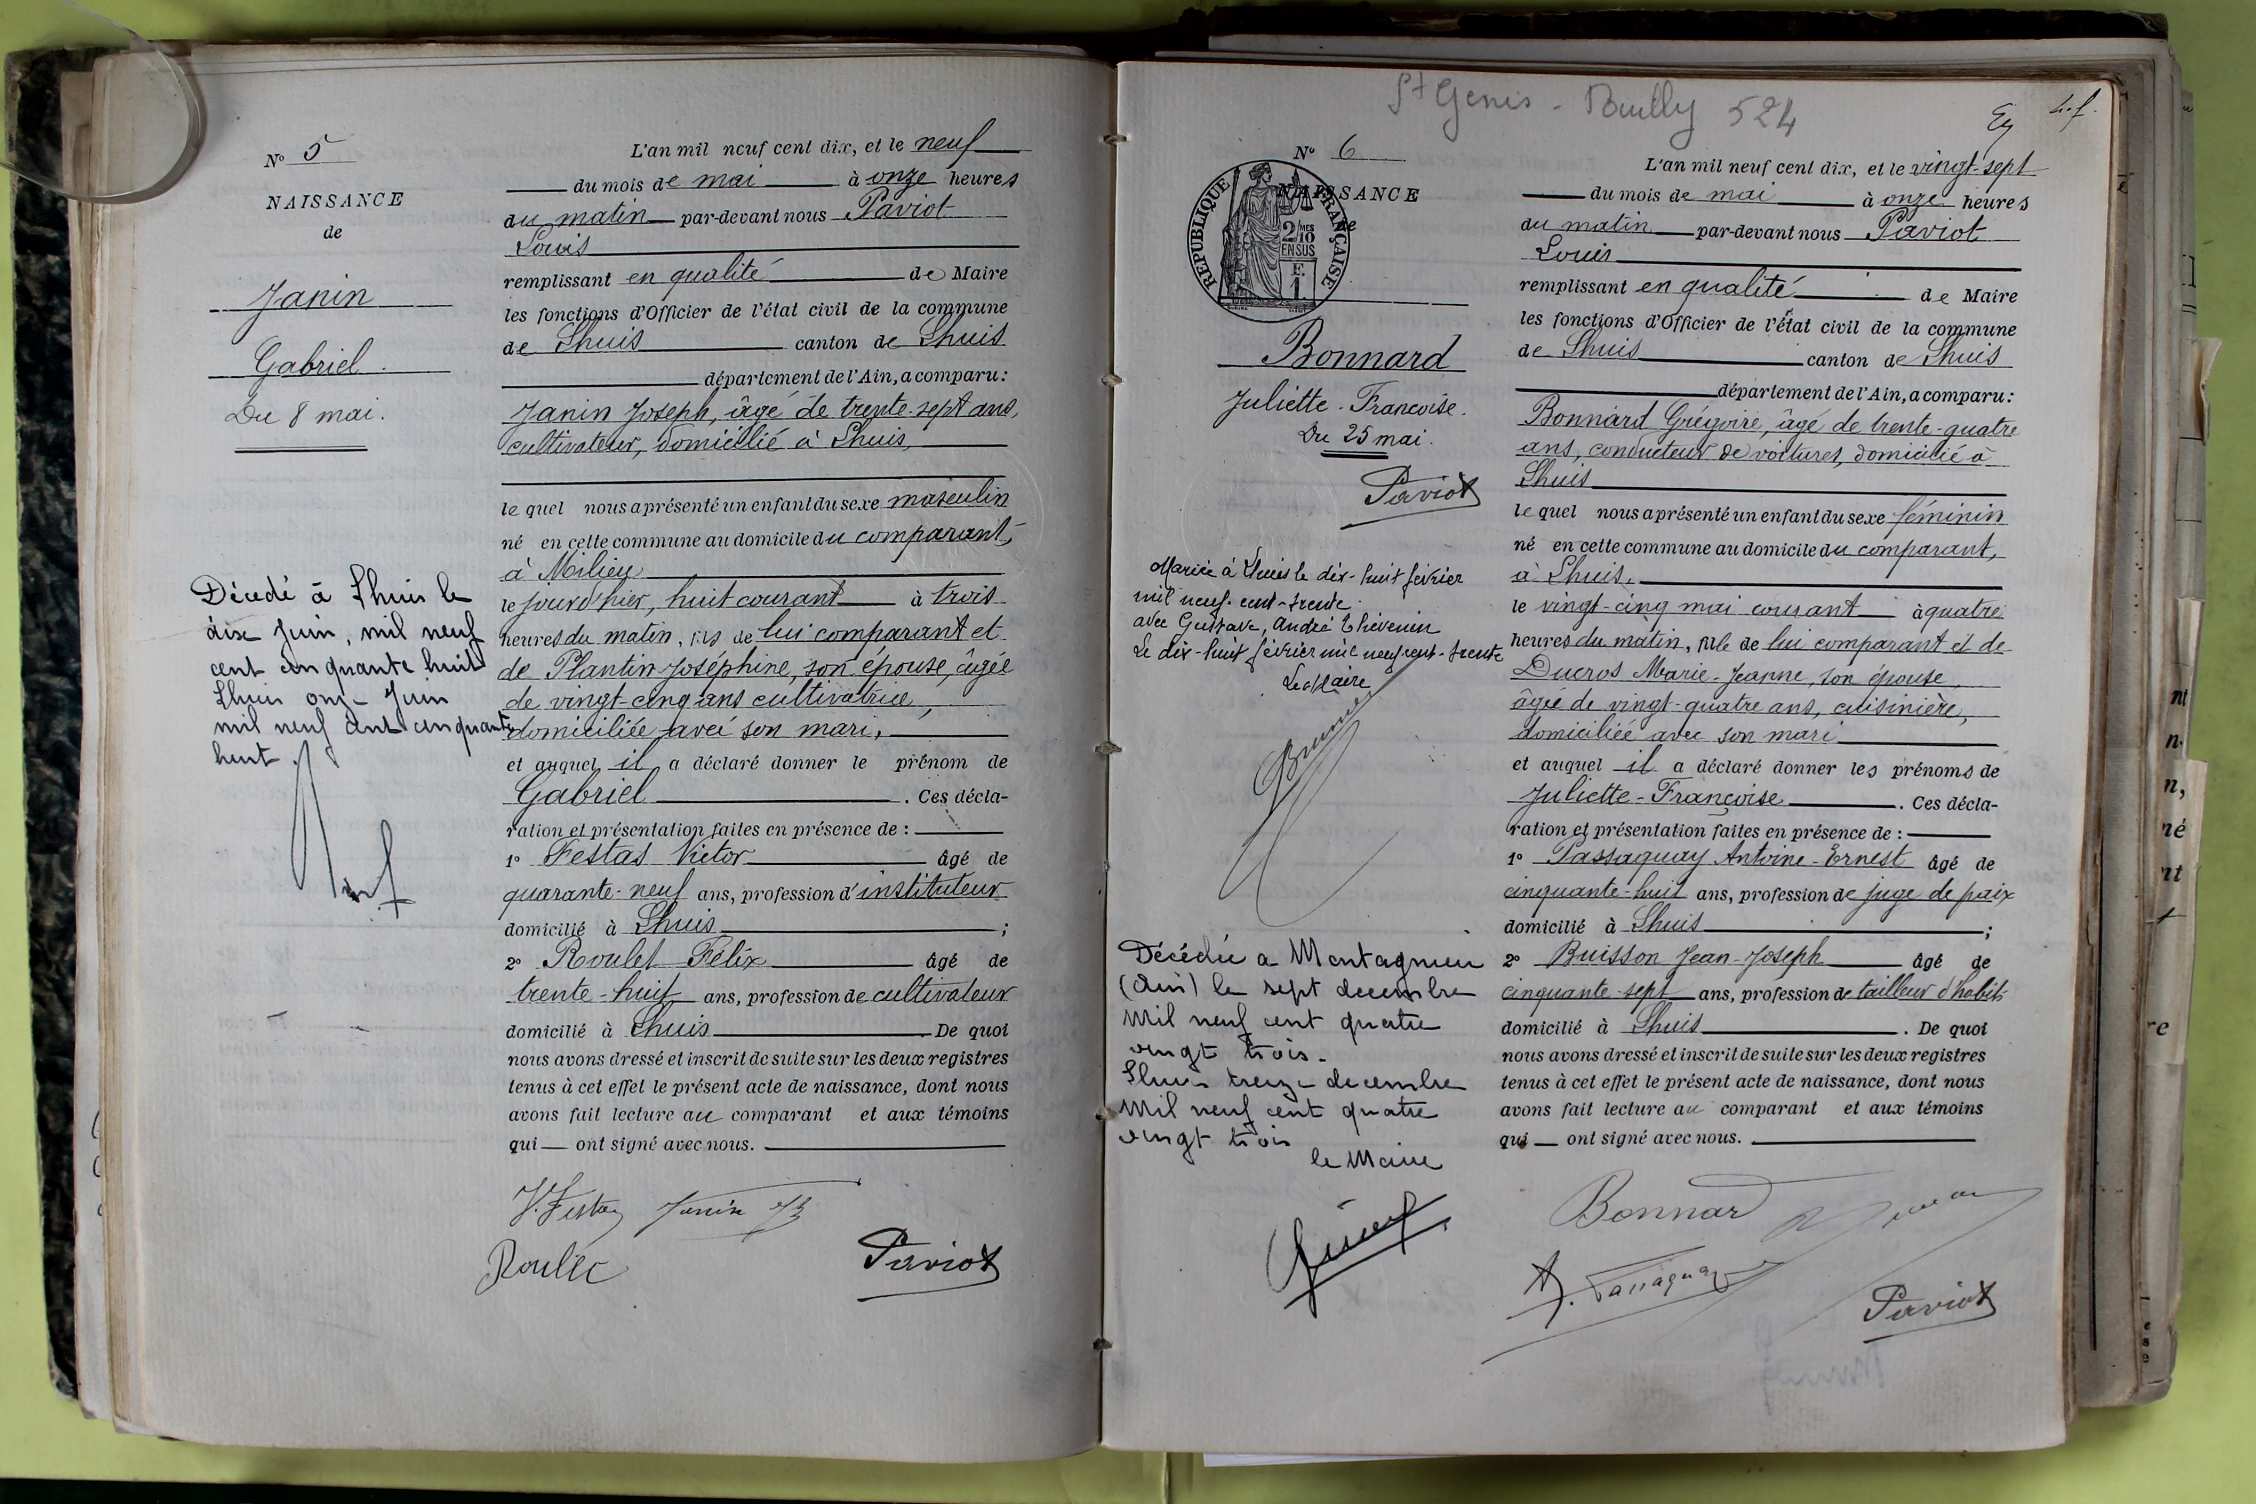 N° 5
NAISSANCE
de
Janin
Gabriel
Du 8 mai.
Décédé à Lhuis le
dix juin, mil neuf
cent cinquante huit
Lhuis onze juin
mil neuf cent cinquante
huit.
L'an mil neuf cent dix, et le neuf
du mois de mai à onze heures
du matin par-devant nous Paviot
Louis
remplissant en qualité de Maire
les fonctions d'Officier de l'état civil de la commune
de Lhuis canton de Lhuis
département de l'Ain, a comparu :
Janin Joseph, âgé de trente-sept ans,
cultivateur, domicilié à Lhuis,
le quel nous a présenté un enfant du sexe masculin
né en cette commune au domicile du comparant,
à Milieu
le jourd'hier, huit courant à trois
heures du matin, fils de lui comparant et
de Plantin Joséphine, son épouse, âgée
de vingt-cinq ans cultivatrice,
domiciliée avec son mari,
et auquel il a déclaré donner le prénom de
Gabriel . Ces décla-
ration et présentation faites en présence de :
1° Festas Victor âgé de
quarante-neuf ans, profession d'instituteur
domicilié à Lhuis ;
2° Roulet Félix âgé de
trente-huit ans, profession de cultivateur
domicilié à Lhuis De quoi
nous avons dressé et inscrit de suite sur les deux registres
tenus à cet effet le présent acte de naissance, dont nous
avons fait lecture au comparant et aux témoins
qui — ont signé avec nous.
V. Festas Janin
Roulet Paviot
St Genis - Pouilly 524
N° 6
NAISSANCE
de
RÉPUBLIQUE FRANÇAISE
2/10 MES
EN SUS
F.
1.
Bonnard
Juliette-Francoise.
Du 25 mai.
Paviot
Mariée à Lhuis le dix-huit février
mil neuf-cent-trente
avec Gustave, André Thévenin
Le dix-huit février mil neuf cent-trente
Le Maire
Décédée a Montagnieu
(Ain) le sept decembre
Mil neuf cent quatre
vingt trois.
Lhuis treize decembre
Mil neuf cent quatre
vingt trois
le Maire
L'an mil neuf cent dix, et le vingt-sept
du mois de mai à onze heures
du matin par-devant nous Paviot
Louis
remplissant en qualité de Maire
les fonctions d'Officier de l'état civil de la commune
de Lhuis canton de Lhuis
département de l'Ain, a comparu :
Bonnard Grégoire, âgé de trente-quatre
ans, conducteur de voitures, domicilié à
Lhuis
le quel nous a présenté un enfant du sexe féminin
né en cette commune au domicile du comparant,
à Lhuis,
le vingt-cinq mai courant à quatre
heures du matin, fille de lui comparant et de
Ducros Marie-Jeanne, son épouse,
âgée de vingt-quatre ans, cuisinière,
domiciliée avec son mari
et auquel il a déclaré donner les prénoms de
Juliette-Françoise . Ces décla-
ration et présentation faites en présence de :
1° Passaquay Antoine-Ernest âgé de
cinquante-huit ans, profession de juge de paix
domicilié à Lhuis ;
2° Buisson Jean-Joseph âgé de
cinquante-sept ans, profession de tailleur d'habits
domicilié à Lhuis . De quoi
nous avons dressé et inscrit de suite sur les deux registres
tenus à cet effet le présent acte de naissance, dont nous
avons fait lecture au comparant et aux témoins
qui — ont signé avec nous.
Bonnard
A. Passaquay
Paviot